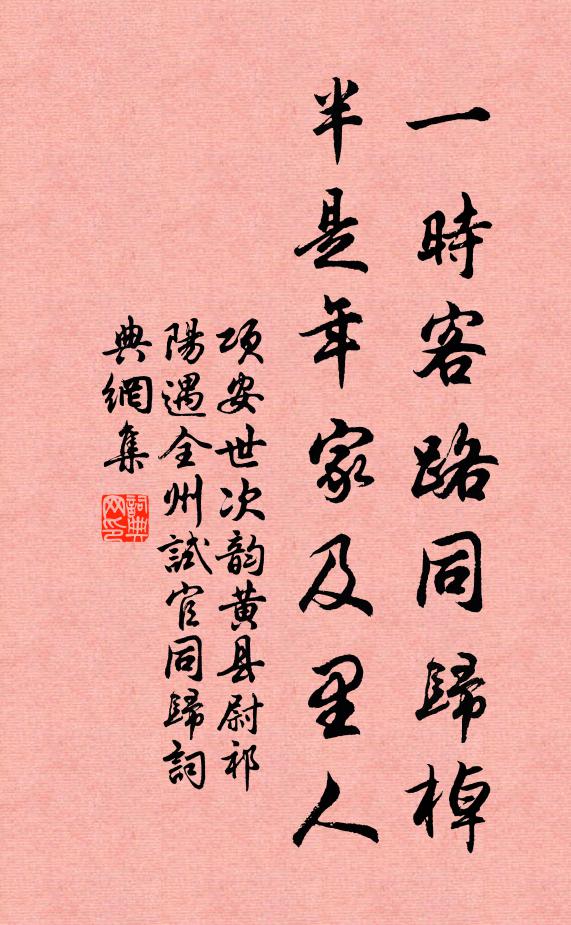 一時客路同歸棹
半是年家及里人
項安世次韵黄县尉祁
陽遇全州試官同歸詞
典網集
詞典网印